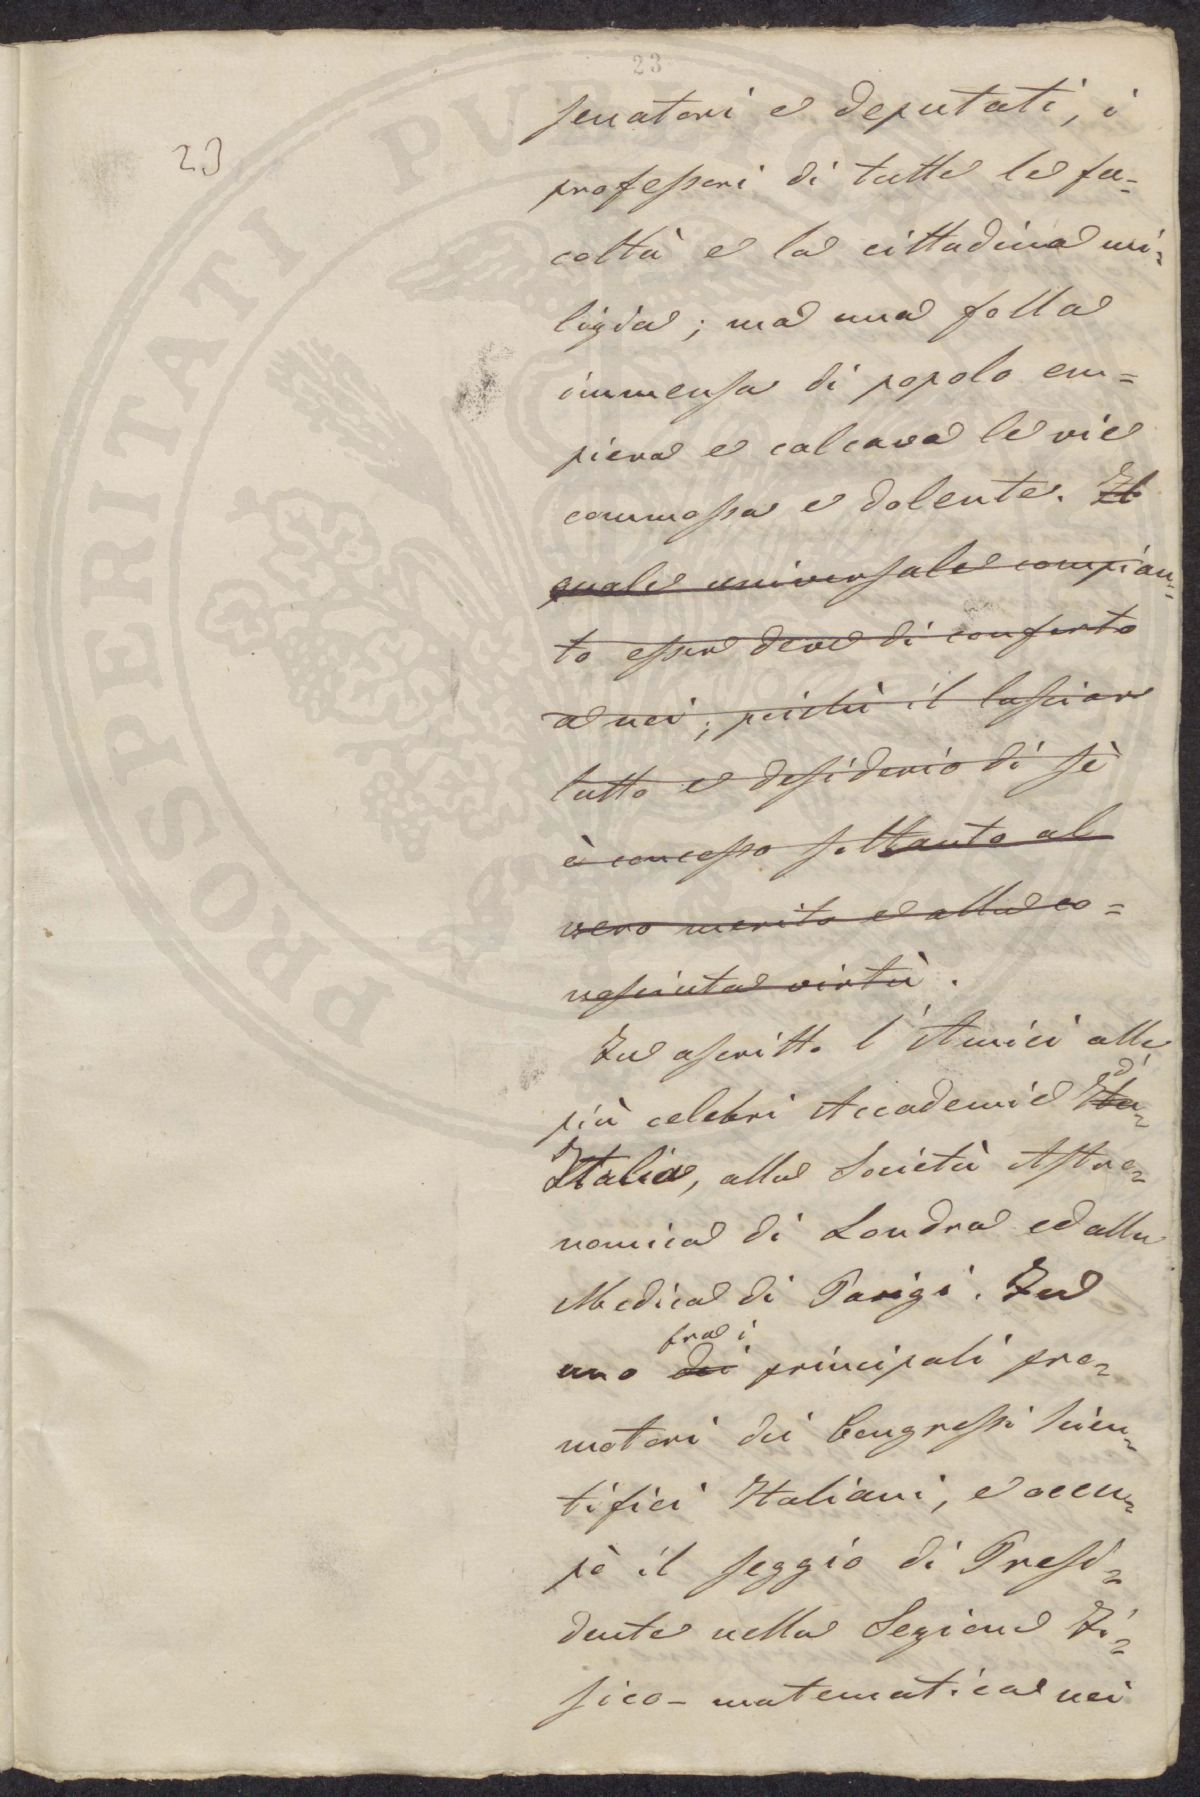 23
23
senatori e deputati, i
professori di tutte le fa=
coltà e la cittadina mi=
lizia; ma una folla
immensa di popolo em=
pieva e calcava le vie
commossa e dolente. Il
quale universale compian=
to esser deve di conforto
a noi; poichè il lasciar
lutto e desiderio di sè
è concesso soltanto al
vero merito e alla co=
nosciuta virtù.
Fu ascritto l'Amici alle
più celebri Accademie Ita= d'
Italia, alla Società Astro=
nomica di Londra ed alla
Medica di Parigi. Fu
fra i
uno dei principali pro=
motori dei Congressi scien=
tifici Italiani, e occu=
pò il seggio di Presi=
dente nella Sezione Fi=
sico-matematica nei
PROSPERITATI PUBLICAE